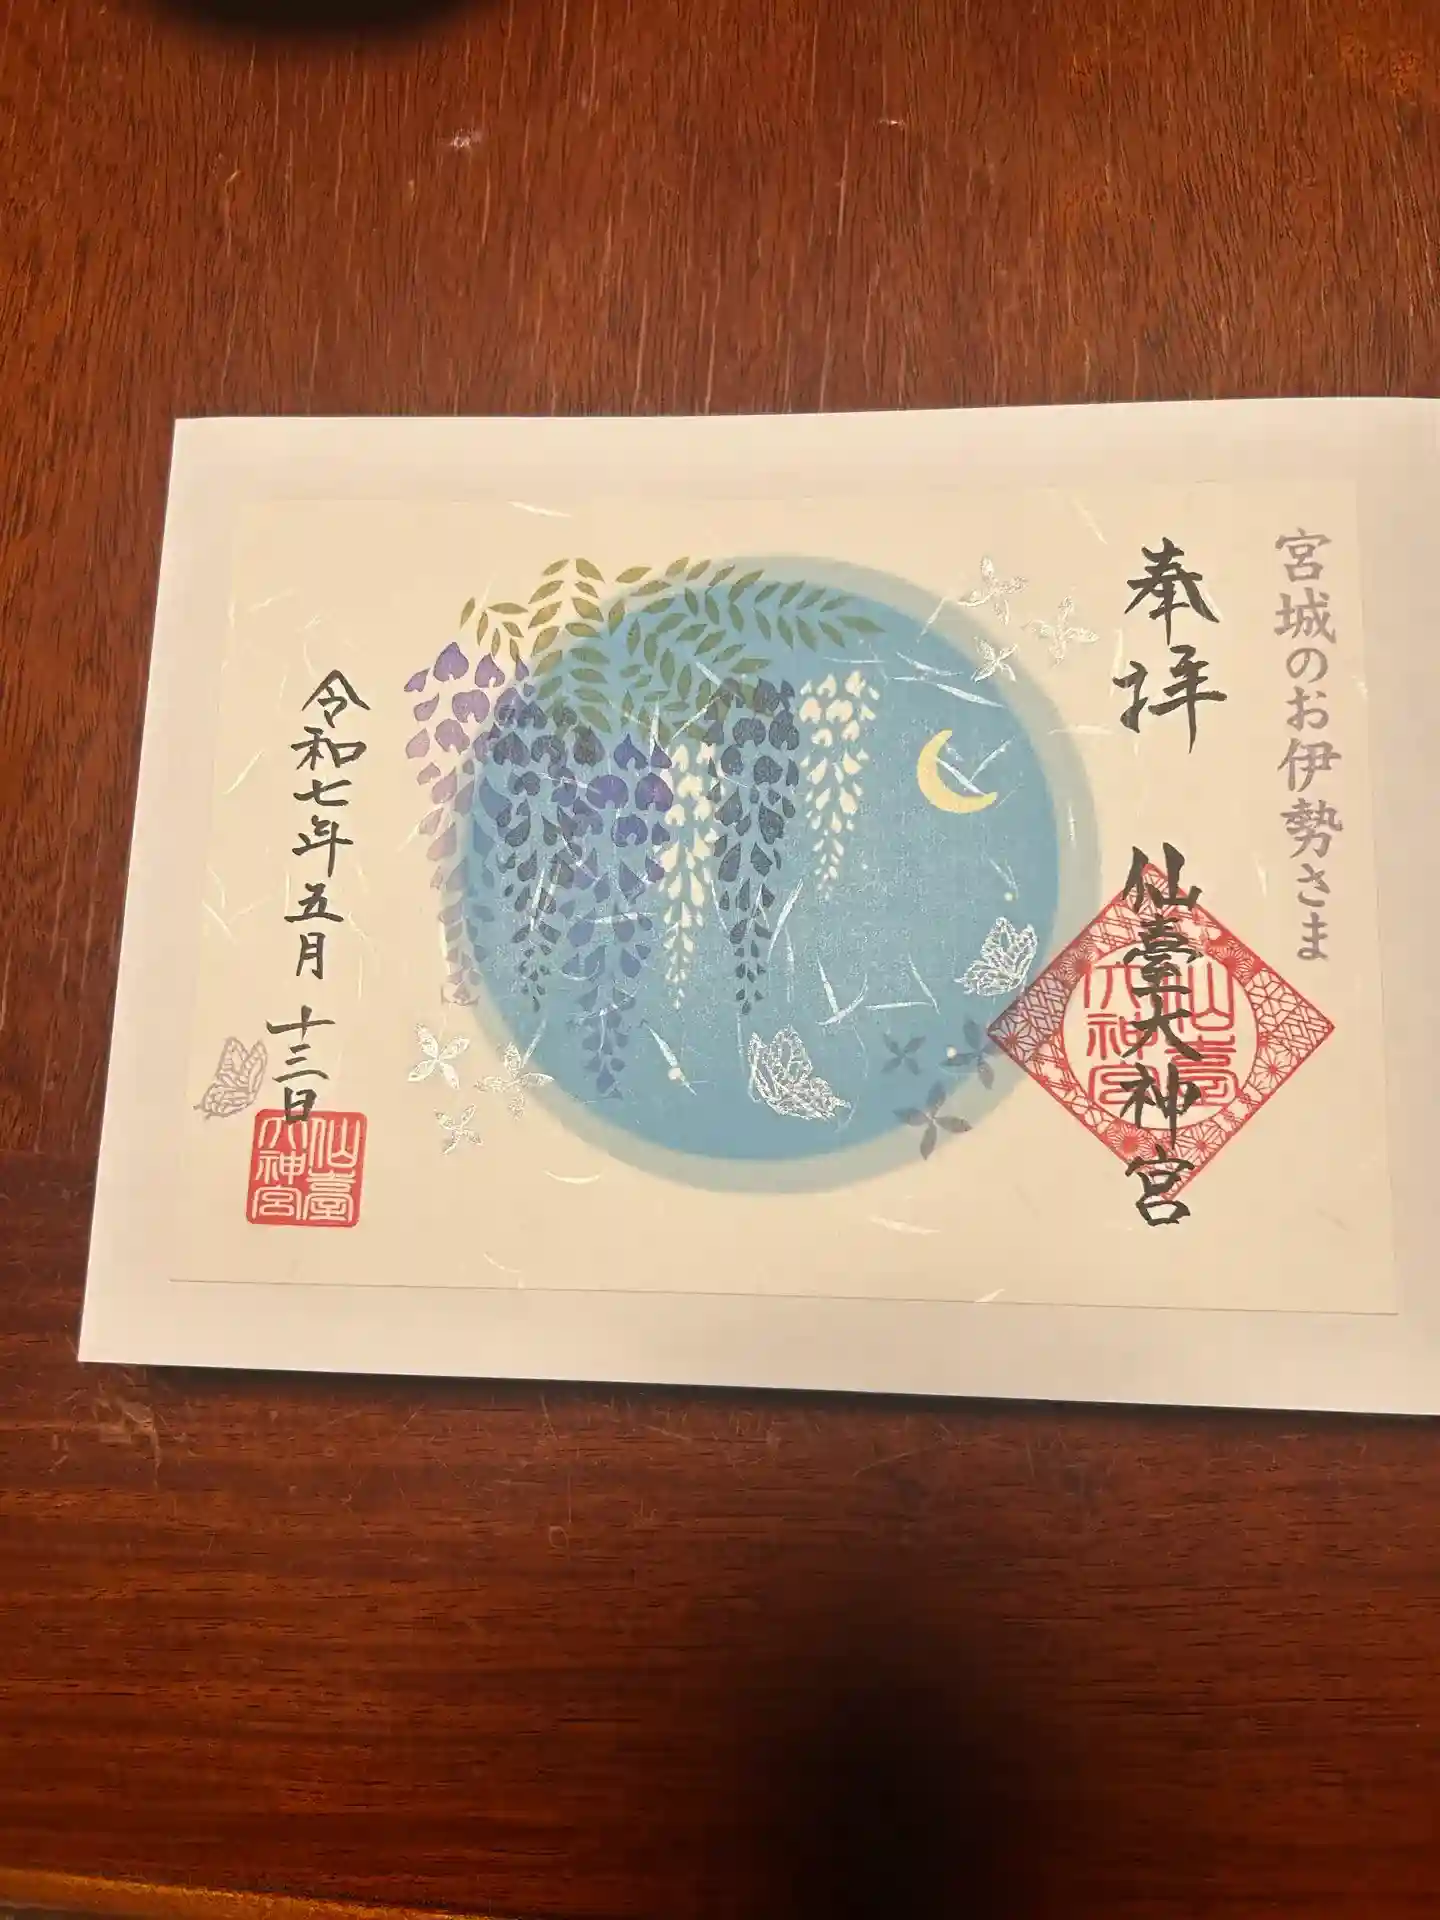 宮城のお伊勢さま
奉拝
仙臺大神宮
仙臺
大神宮
令和七年五月十三日
仙臺
大神宮